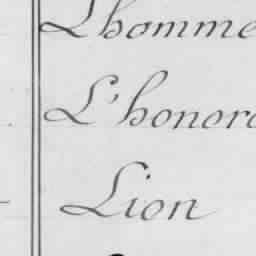 Lhomme
L'honoré
Lion